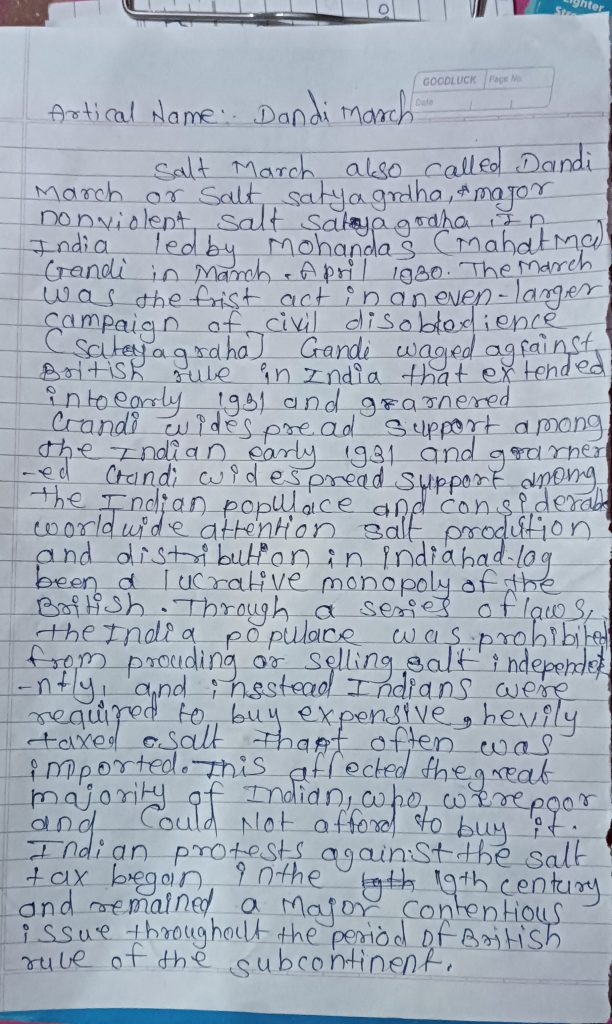 Lighter
GOODLUCK Page No.
Date
Artical Name:- Dandi March
Salt March also called Dandi
March or Salt satyagraha, major
nonviolent salt satayagraha In
India led by Mohandas (Mahatma)
Gandi in March-April 1930. The March
was the frist act in an even-larger
campaign of civil
(Sateyagraha) Gandi waged against
British rule in India that extended
into early 1931 and gearnered
Gandi widespread support among
the Indian early 1931 and gearner
-ed Gandi widespread support among
the Indian populace and considerable
worldwide affention salt prodution
and distribution in indiahad-log
been a lucrative monopoly of the
British. Through a series of laws,
the India populace was prohibited
from prouding or selling salt independe
-ntly, and insstead Indians were
required to buy expensive, hevily
taxed salt that often was
imported. This affected the great
majority of Indian, who, were poor
and Could Not afford to buy it.
Indian protests against the salt
tax began in the 19th century
and remained a major contentious
issue throughout the period of British
rule of the subcontinent.